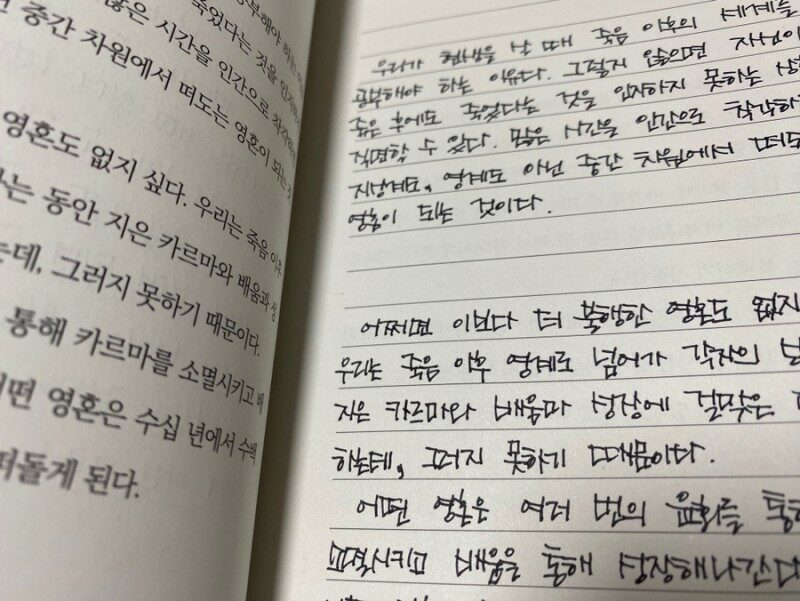 부해야 하는
죽었다는 것을 인지하
많은 시간을 인간으로 착각하며
중간 차원에서 떠도는 영혼이 되는 것
영혼도 없지 싶다. 우리는 죽음 이후
는 동안 지은 카르마와 배움과 성
는데, 그러지 못하기 때문이다.
통해 카르마를 소멸시키고 배
어떤 영혼은 수십 년에서 수백
떠돌게 된다.
우리가 현생을 살 때 죽음 이후의 세계를
공부해야 하는 이유다. 그렇지 않으면 자신이
죽은 후에도 죽었다는 것을 인지하지 못하는 상
직면할 수 있다. 많은 시간을 인간으로 착각하
지상계도, 영계도 아닌 중간 차원에서 떠도
영혼이 되는 것이다.
어쩌면 이보다 더 불행한 영혼도 없지
우리는 죽음 이후 영계로 넘어가 각자의
지은 카르마와 배움과 성장에 걸맞은
하는데, 그러지 못하기 때문이다.
어떤 영혼은 여러 번의 윤회를 통
소멸시키고 배움을 통해 성장해나간다